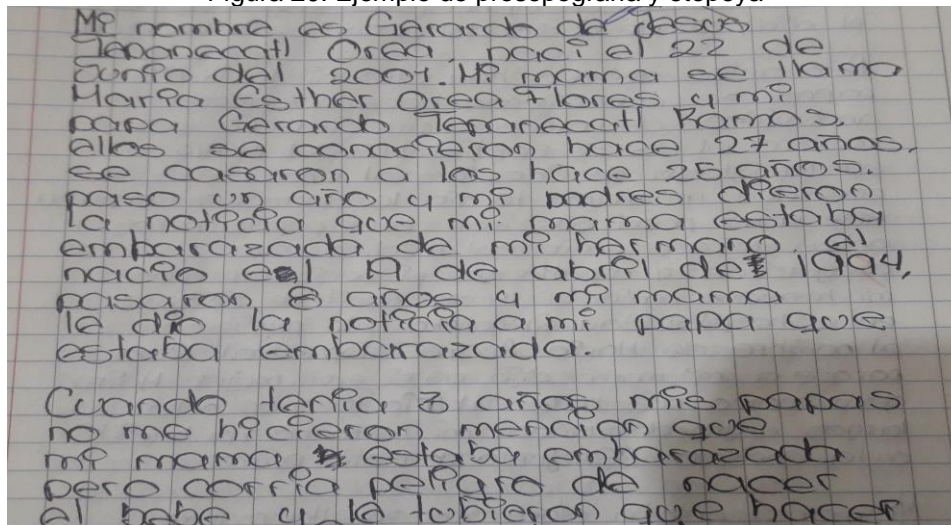 Figura 20. Ejemplo de prosopografía y etopeya
Mi nombre es Gerardo de Jesus
Tepanecatl Orea, naci el 22 de
Junio del 2001. Mi mama se llama
Maria Esther Orea Flores y mi
papa Gerardo Tepanecatl Ramos.
ellos se conocieron hace 27 años.
se casaron a los hace 25 años.
paso un año y mi padres dieron
la noticia que mi mama estaba
embarazada de mi hermano. el
nacio el de abril de 1994,
pasaron 8 años y mi mama
le dio la noticia a mi papa que
estaba embarazada.
Cuando tenia 3 años mis papas
no me hicieron mencion que
mi mama estaba embarazada
pero corria peligro de nacer
el bebe y le tobieron que hacer